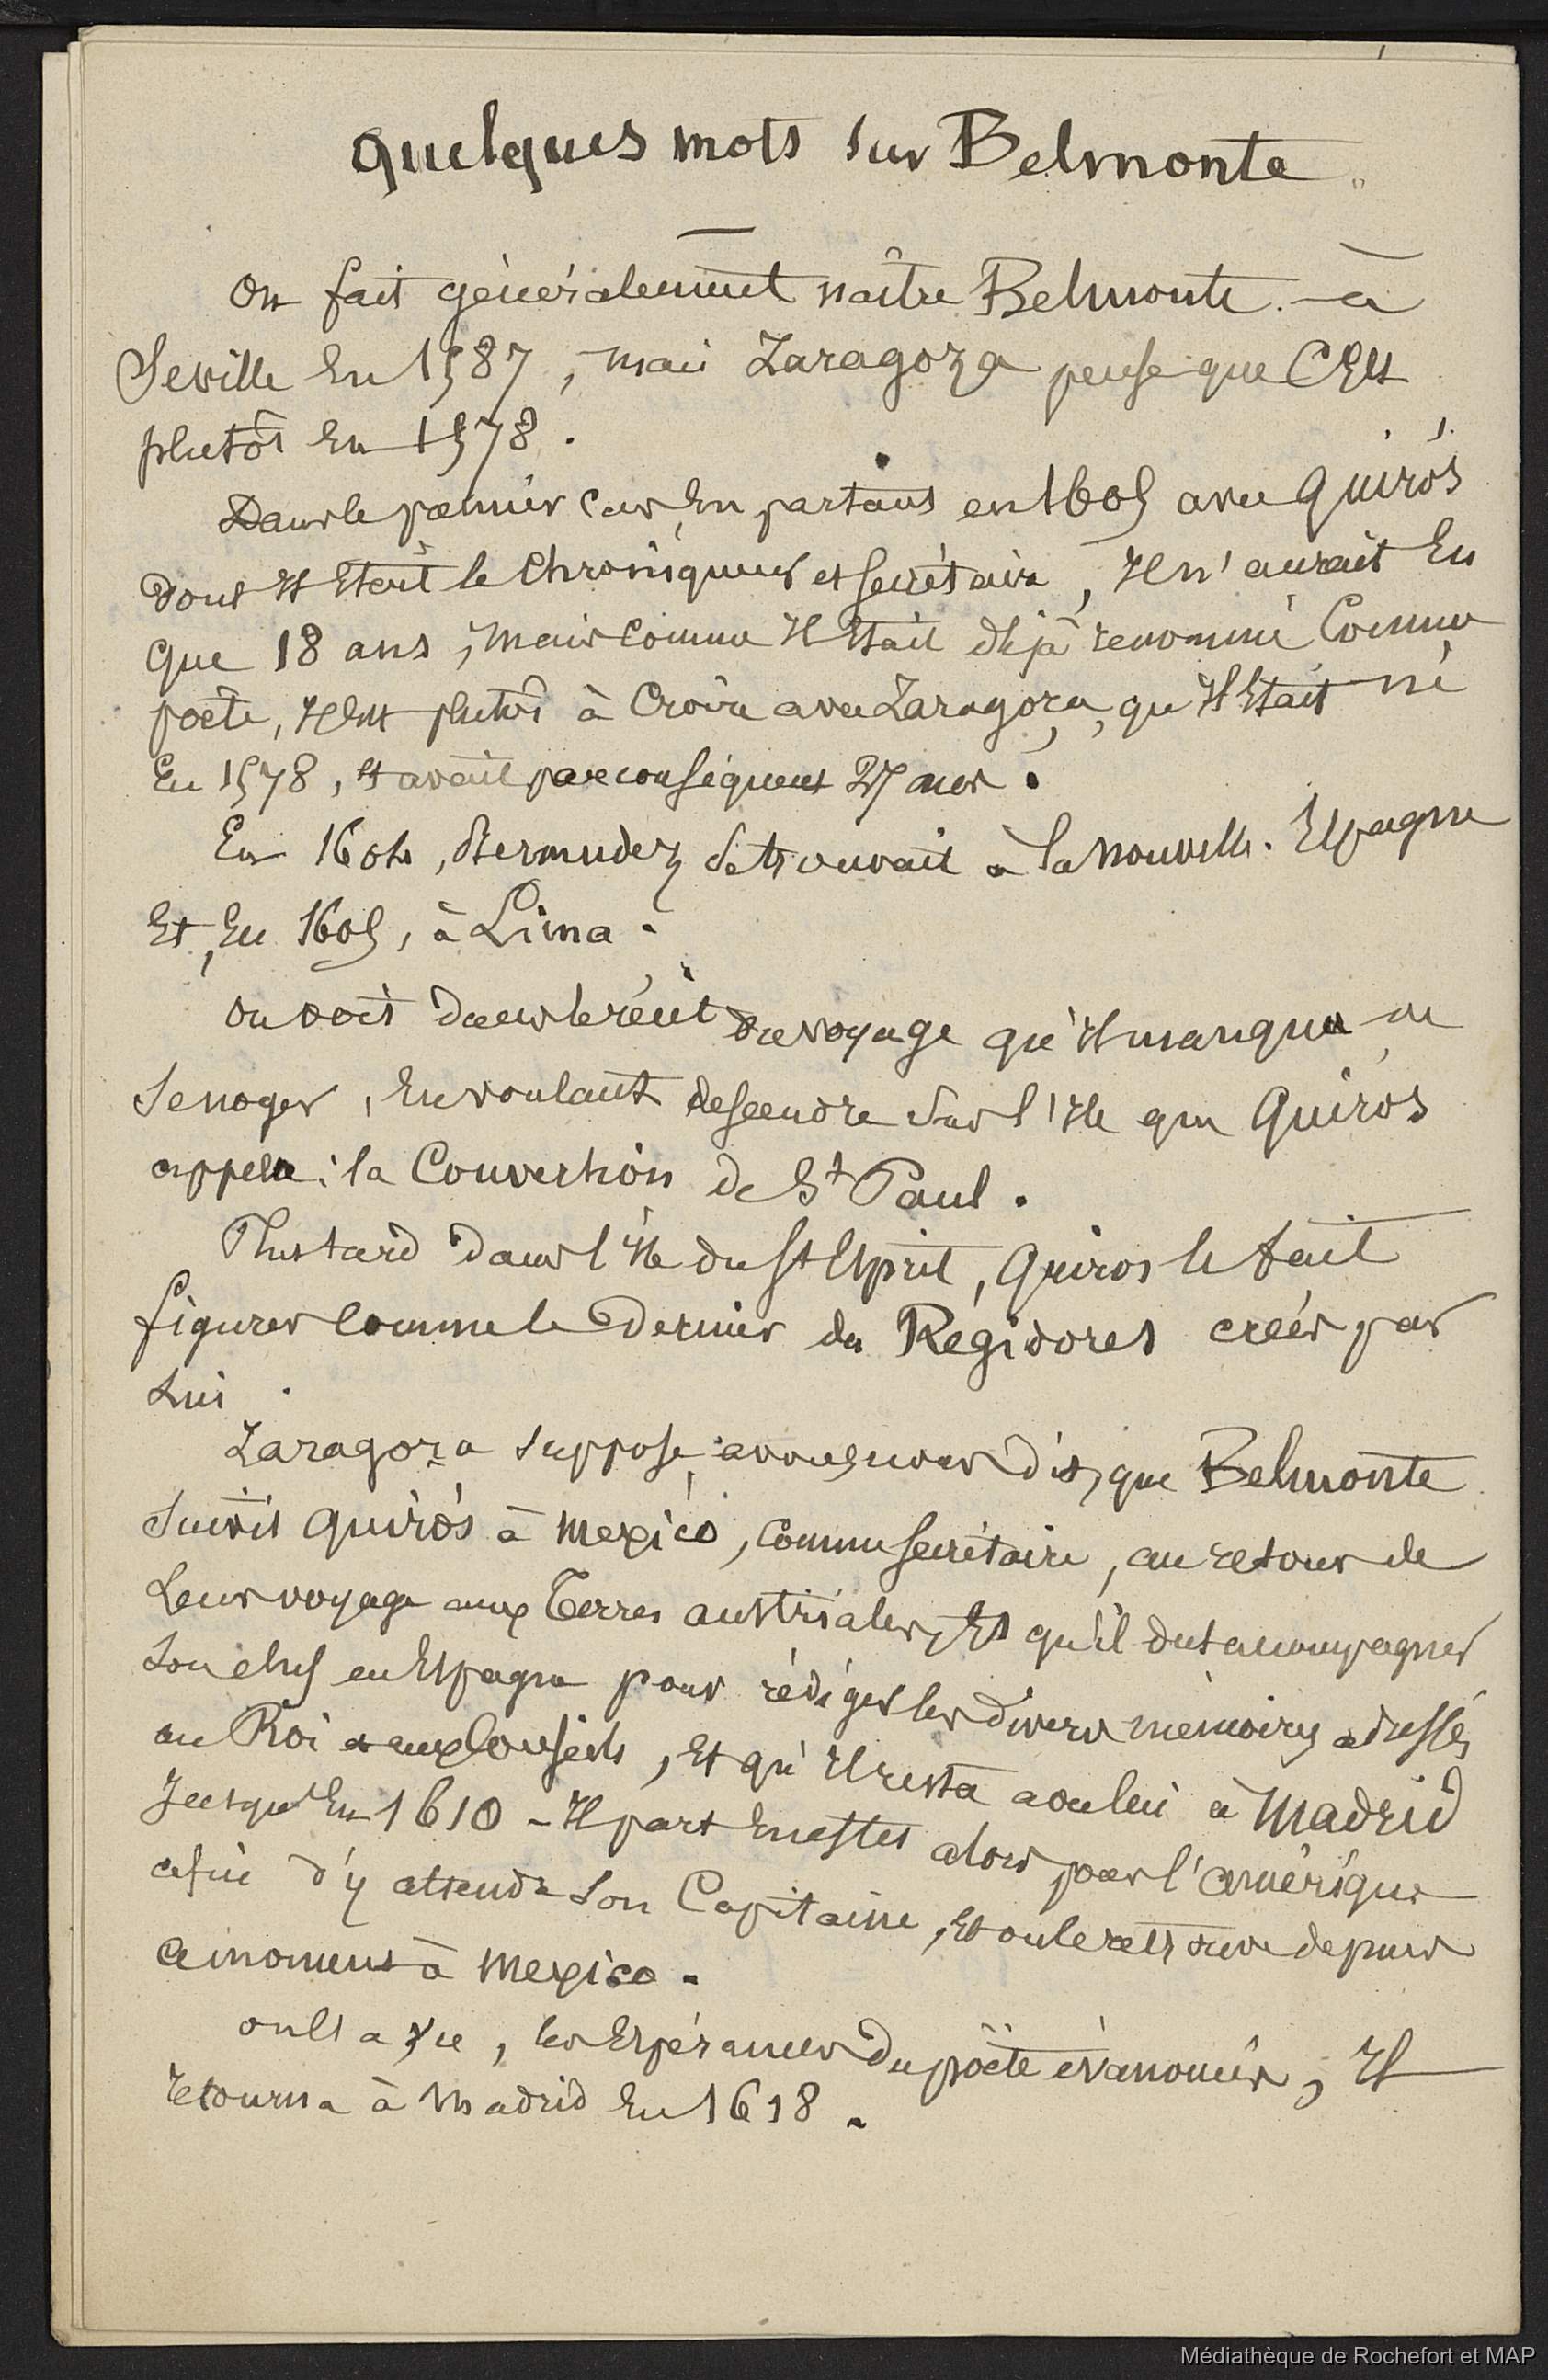 Quelques mots sur Belmonte.
On fait généralement naître Belmonte à
Seville en 1587, mais Zaragoza pense que c'est
plutôt en 1578.
Dans le premier cas, en partant en 1605 avec Quirós
dont il était le chroniqueur et secrétaire, il n'aurait eu
que 18 ans, mais comme il était déjà renommé comme
poëte, il est plutôt à croire avec Zaragoza, qu'il était né
en 1578, et avait par conséquent 27 ans.
En 1604, Bermudez se trouvait à la Nouvelle-Espagne
et, en 1605, à Lima.
On voit dans le récit du voyage qu'il manqua de
se noyer, en voulant descendre sur l'île que Quirós
appela : la Conversion de St Paul.
Plus tard dans l'île du St Esprit, Quiros le fait
figurer comme le dernier des Régidores créés par
lui.
Zaragoza suppose, avons nous dit, que Belmonte
suivit Quirós à Mexico, comme secrétaire, au retour de
leur voyage aux Terres australes, et qu'il dut accompagner
son chef en Espagne pour rédiger les divers mémoires adressés
au Roi et aux Conseils, et qu'il resta avec lui à Madrid
jusqu'en 1610 - Il part en effet alors pour l'Amérique
afin d'y attendre son Capitaine, et on le retrouve depuis
ce moment à Mexico.
On l'a vu, les espérances du poëte évanouies, il
retourna à Madrid en 1618.
Médiathèque de Rochefort et MAP